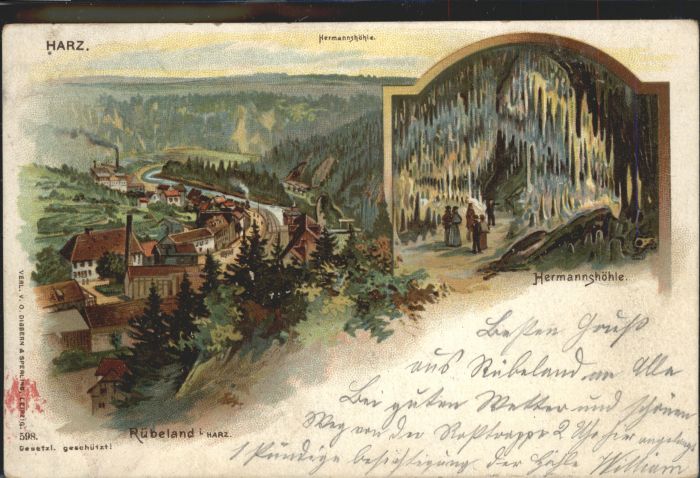 HARZ.
Hermannshöhle.
Hermannshöhle.
VERL. V. O. DIBBERN & SPERLING, LEIPZIG.
598.
Gesetzl. geschützt!
Rübeland i. HARZ.
Besten Gruß
aus Rübeland an Alle
Bei guten Wetter und schönen
Weg von der Roßtrappe 2 Uhr hir angelangt
1 stündige besichtigung der Höhle William